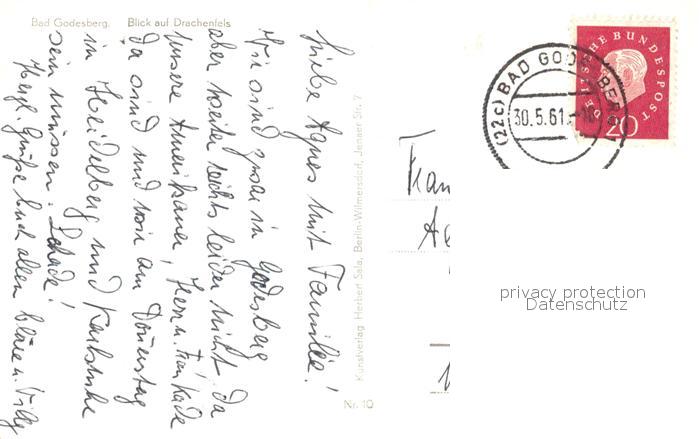 Bad Godesberg. Blick auf Drachenfels
Liebe Agnes mit Familie!
Wir sind zwar in Godesberg
aber weiter reichts leider nicht, da
unsere Amerikaner, Herr u. Frau
da sind und wir am Donnerstag
in Heidelberg und Karlsruhe
sein müssen. Schade!
Herzl. Grüße Euch allen Kläre u. Willy
Kunstverlag Herbert Sala, Berlin-Wilmersdorf, Jenaer Str. 7
Nr. 10
(22c) BAD GODESBERG 1
30.5.61.-18
DEUTSCHE BUNDESPOST
20
privacy protection
Datenschutz